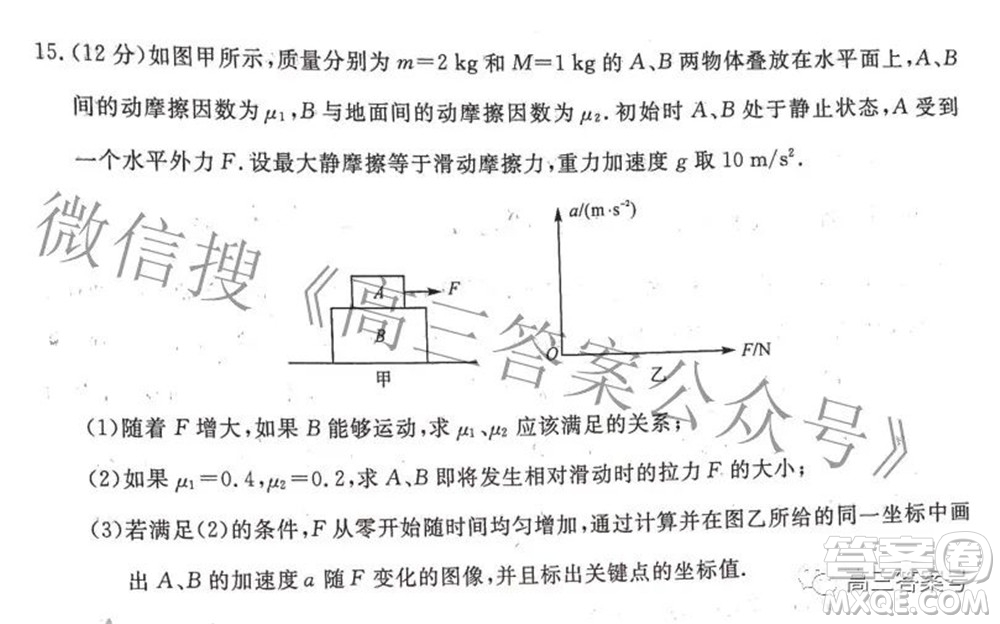 15.(12分)如图甲所示,质量分别为 m=2 kg 和 M=1 kg 的 A、B 两物体叠放在水平面上,A、B
间的动摩擦因数为 μ₁,B 与地面间的动摩擦因数为 μ₂.初始时 A、B 处于静止状态,A 受到
一个水平外力 F.设最大静摩擦等于滑动摩擦力,重力加速度 g 取 10 m/s².
a/(m·s⁻²)
A
F
B
O
F/N
甲
乙
(1)随着 F 增大,如果 B 能够运动,求 μ₁、μ₂ 应该满足的关系;
(2)如果 μ₁=0.4,μ₂=0.2,求 A、B 即将发生相对滑动时的拉力 F 的大小;
(3)若满足(2)的条件,F 从零开始随时间均匀增加,通过计算并在图乙所给的同一坐标中画
出 A、B 的加速度 a 随 F 变化的图像,并且标出关键点的坐标值.
微信搜《高三答案公众号》
答案卷
高三答案号
MXQE.COM